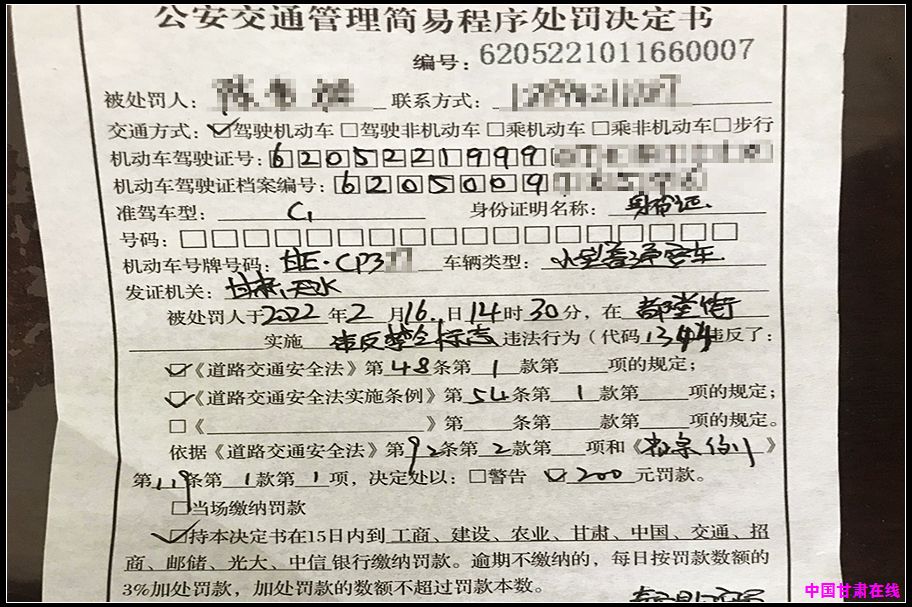 公安交通管理简易程序处罚决定书
编号:6205221011660007
被处罚人: 联系方式:
交通方式: ☑驾驶机动车 □驾驶非机动车 □乘机动车 □乘非机动车 □步行
机动车驾驶证号: 6205221999
机动车驾驶证档案编号: 6205009
准驾车型: C1 身份证明名称: 身份证
号码: □□□□□□□□□□□□□□□□□□
机动车号牌号码: 甘E·CP3 车辆类型: 小型普通客车
发证机关: 甘肃天水
被处罚人于2022年2月16日14时30分,在 都堂街
实施 违反禁令标志 违法行为(代码1344违反了:
☑《道路交通安全法》第48条第1款第 项的规定;
☑《道路交通安全法实施条例》第54条第1款第 项的规定;
□《 》第 条第 款第 项的规定。
依据《道路交通安全法》第92条第2款第 项和《 》
第119条第1款第1项,决定处以:□警告 ☑200元罚款。
□当场缴纳罚款
☑持本决定书在15日内到 工商、建设、农业、甘肃、中国、交通、招
商、邮储、光大、中信 银行缴纳罚款。逾期不缴纳的,每日按罚款数额的
3%加处罚款,加处罚款的数额不超过罚款本数。
中国甘肃在线